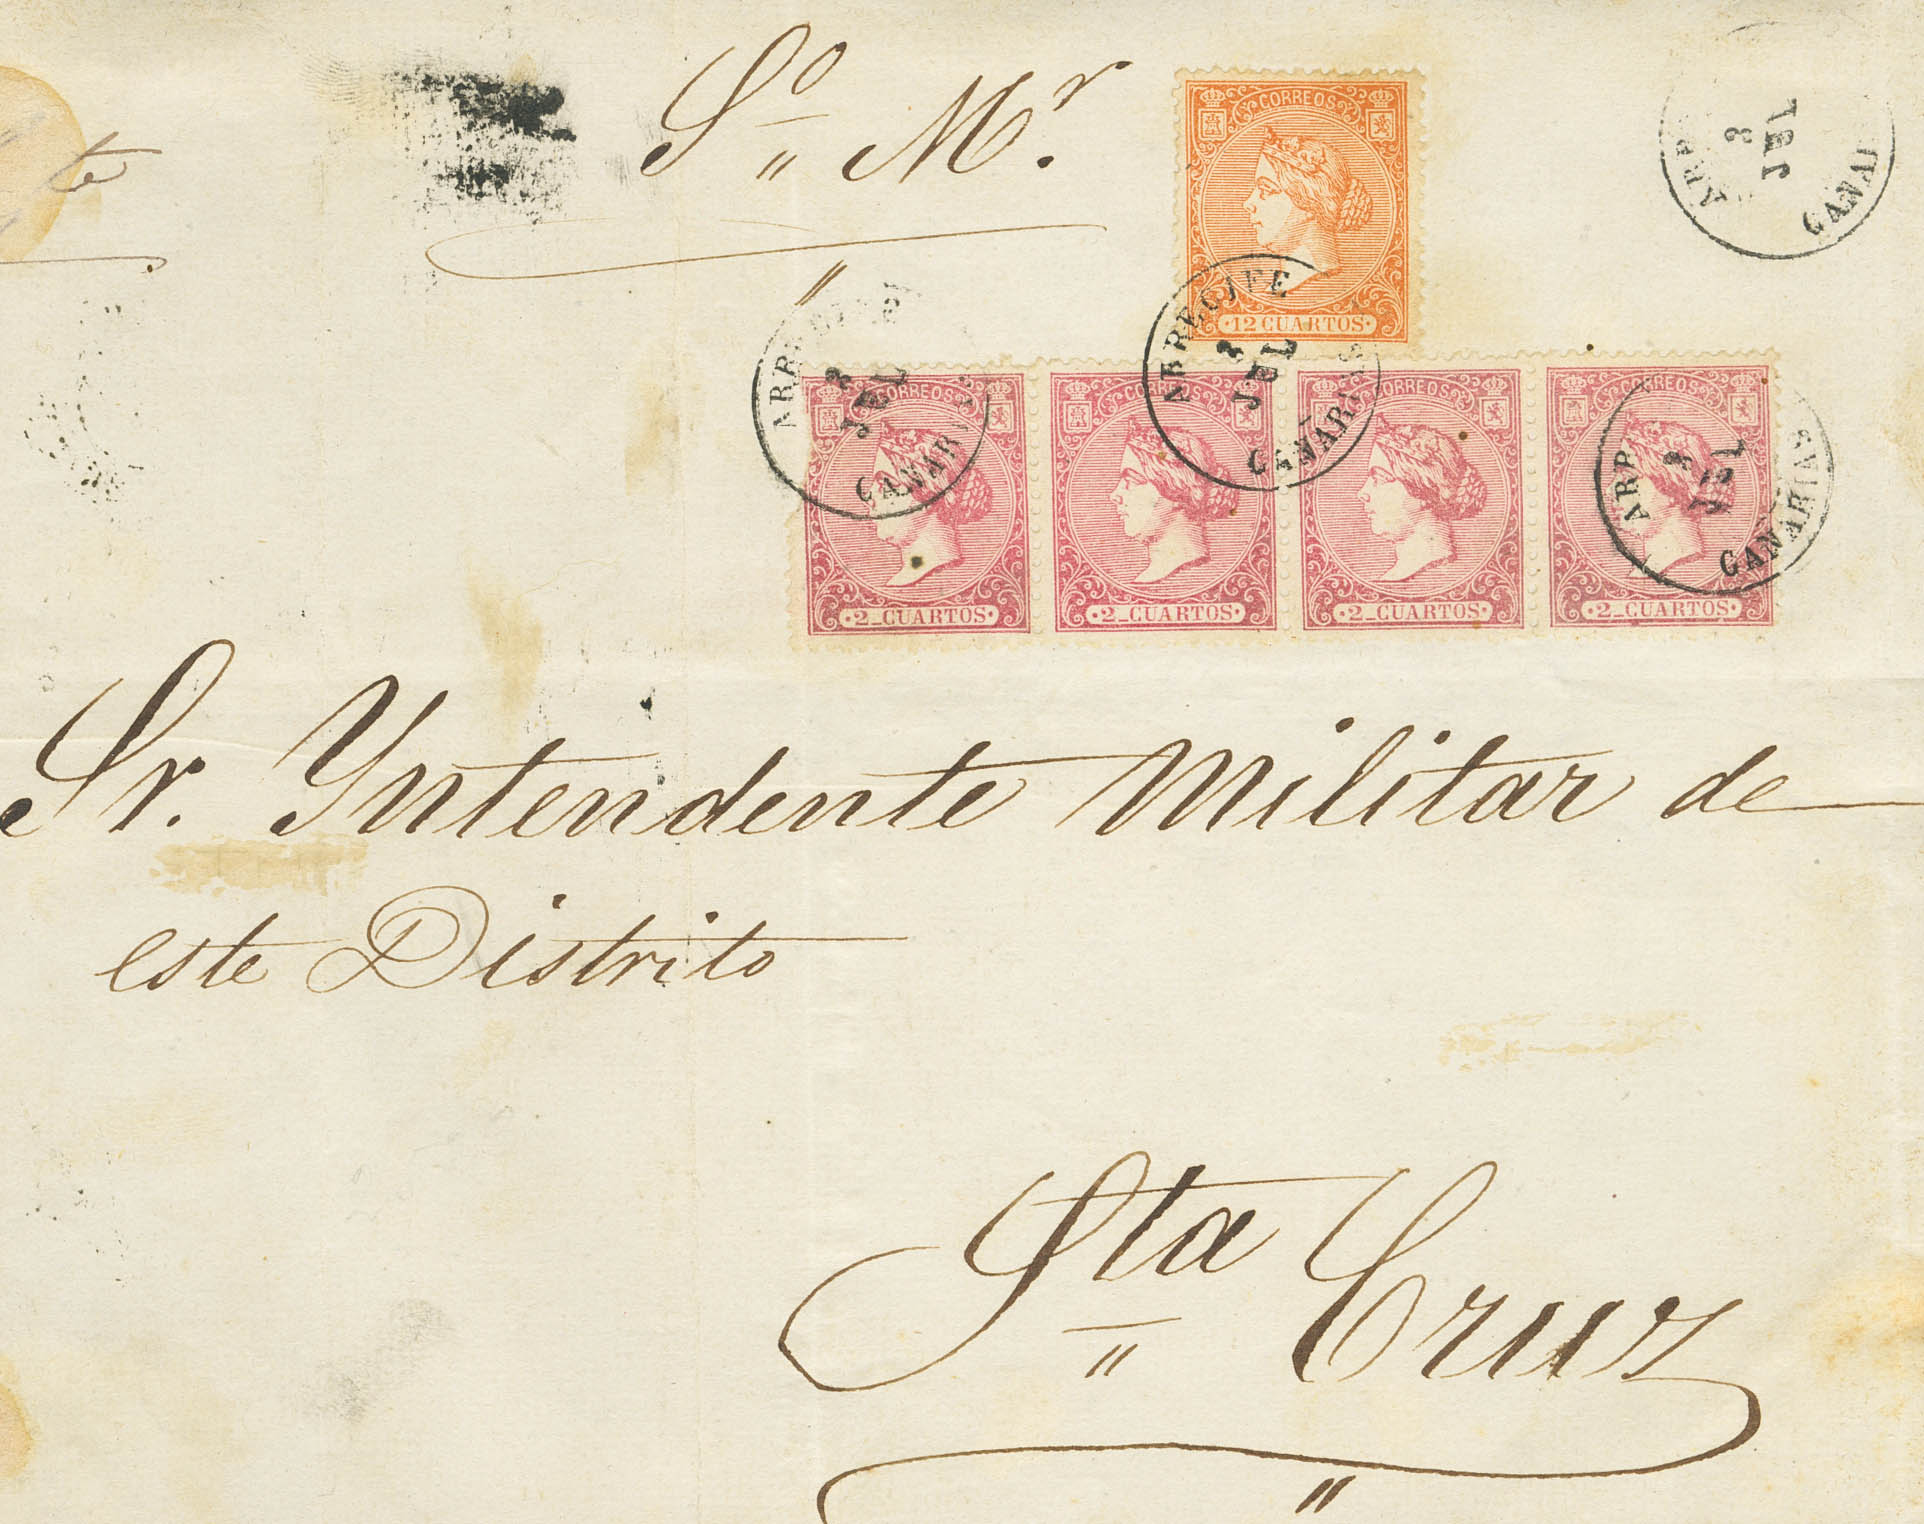 So Mr.
te
CORREOS
12 CUARTOS
ARRECIFE
3
JUL
CANARIAS
CANARIAS
3
JUL
CORREOS
2_CUARTOS
CORREOS
2_CUARTOS
CORREOS
2_CUARTOS
CORREOS
2_CUARTOS
3
JUL
CANARIAS
3
JUL
CANARIAS
Sr. Yntendente Militar de
este Distrito
Sta Cruz